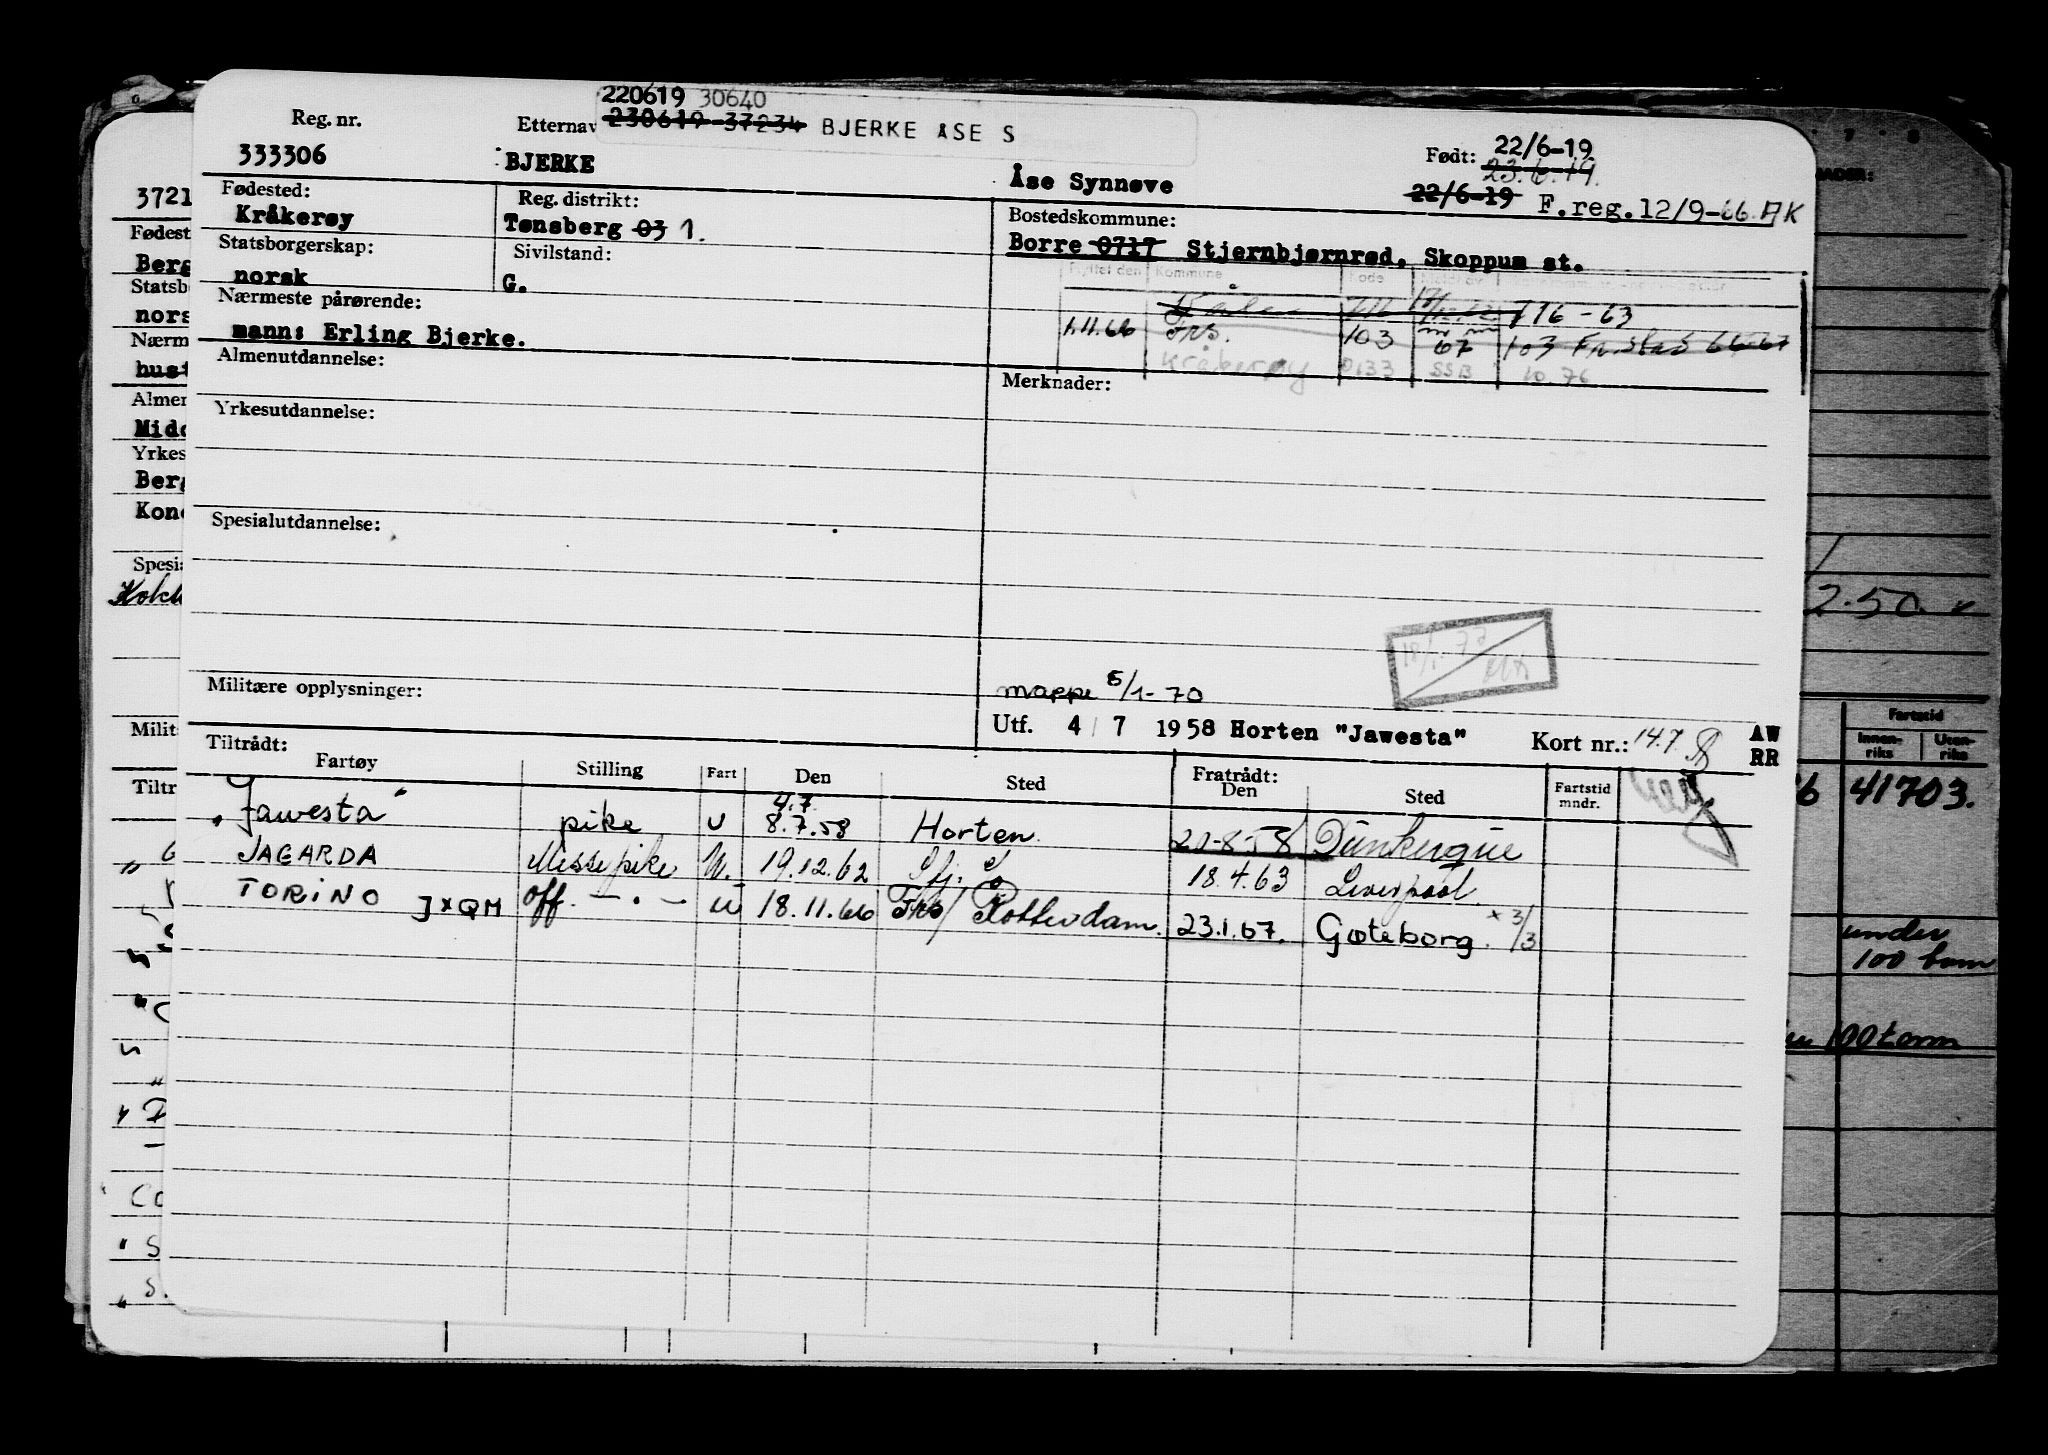 220619 30640
Reg. nr.
Etternav
230619 37234 BJERKE ÅSE S
333306
BJERKE
Åse Synnøve
Født: 22/6-19
23.6.19.
22/6-19 F.reg.12/9-66. AK
Fødested:
Kråkerøy
Reg. distrikt:
Tønsberg 03 1.
Bostedskommune:
Borre 0717 Stjernbjørnrød, Skoppum st.
Statsborgerskap:
norsk
Sivilstand:
G.
Flyttet den Kommune Kode
716-63
Nærmeste pårørende:
mann: Erling Bjerke.
1.11.66 Frs. 103 67 103 Fr.stad 66-67
Kråkerøy 0133 SSB 10.76
Almenutdannelse:
Merknader:
Yrkesutdannelse:
Spesialutdannelse:
Militære opplysninger:
mappe 5/1-70
Utf. 4/7 1958 Horten "Jawesta" Kort nr.: 14.7 AW
RR
Tiltrådt:
Fartøy Stilling Fart Den Sted Fratrådt:
Den Sted Fartstid
mndr.
4.7.
"Jawesta" pike U 8.7.58 Horten. 20-8-58 Dünkerque
JAGARDA Messepike U. 19.12.62 18.4.63 Liverpool.
TORINO JXQM off. — . — u 18.11.66 Frs/ Rotterdam. 23.1.67. Gøteborg. x 3/3
3721
Fødest
Berg
Statsb
nors
Nærm
hust
Almen
Midd
Yrkes
Berg
Kond
Spesia
Milit
Tiltr
2.50.
Fartstid
Innen-
riks
Uten-
riks
6 41703.
under
100 tonn
100 tonn